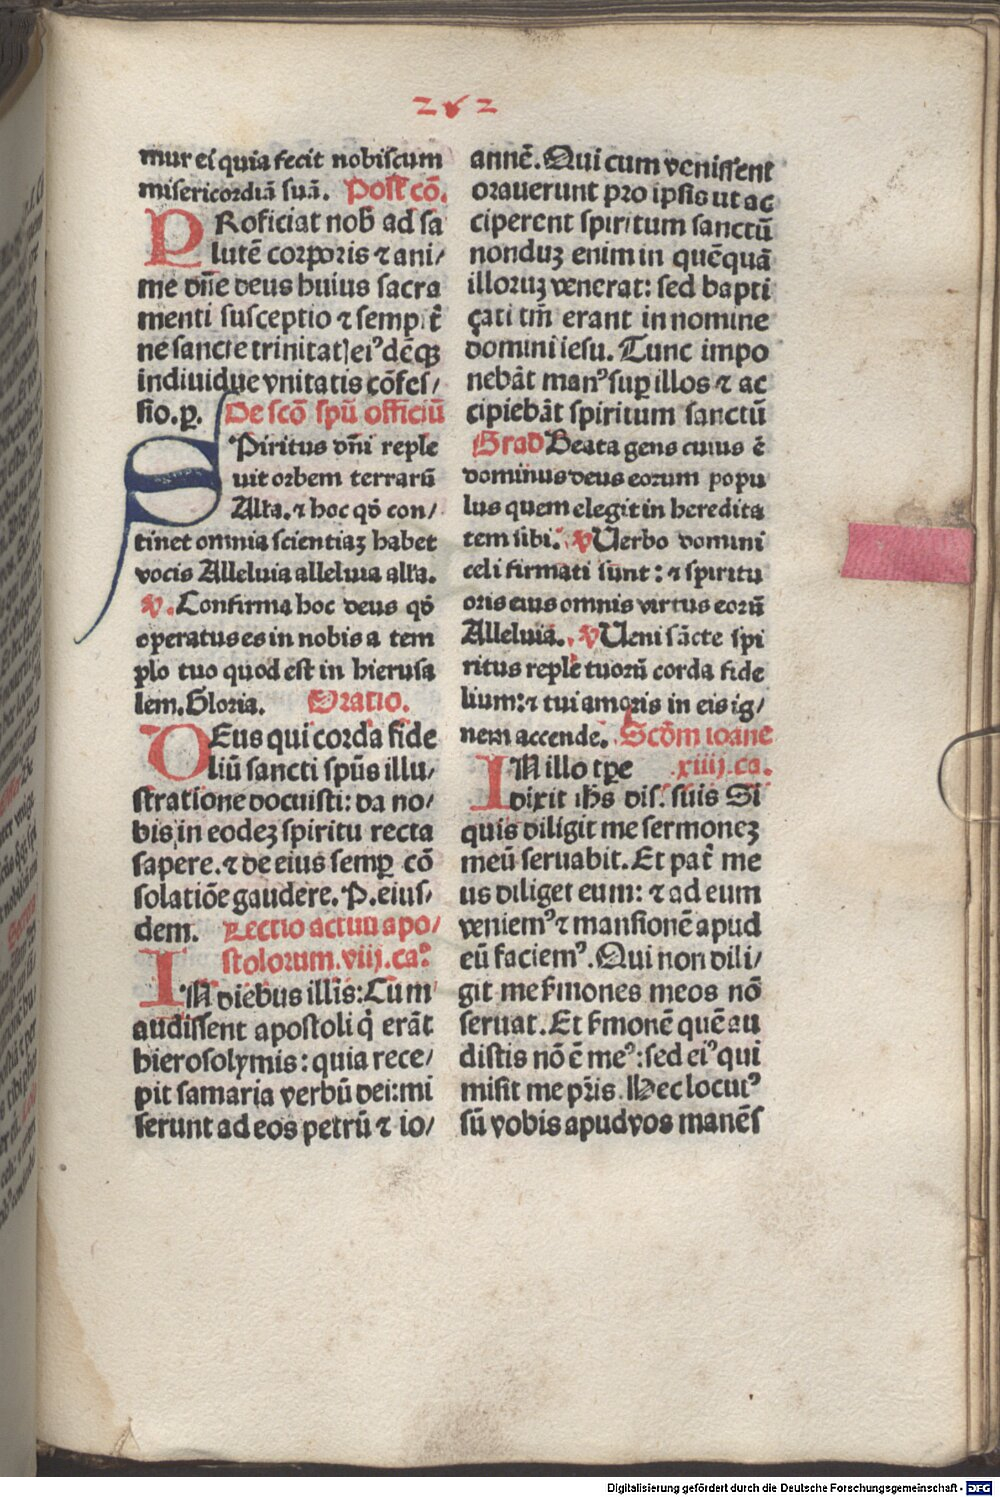 262
mur ei quia fecit nobiscum
misericordiā suā. Post cō.
PRoficiat nob̄ ad sa
lutē corporis ⁊ ani/
me dn̄e deus huius sacra
menti susceptio ⁊ semp̱ t̄
ne sancte trinitat] eiꝰ dēqꝫ
indiuidue vnitatis cōfes/
sio.ꝑ. De scō spū officiū
SPiritus dn̄i reple
uit orbem terrarū
Alla.⁊ hoc qō con/
tinet omnia scientiaꝫ habet
vocis Alleluia alleluia alla.
v. Confirma hoc deus qō
operatus es in nobis a tem
plo tuo quod est in hierusa
lem. Gloria. Oratio.
DEus qui corda fide
liū sancti spūs illu/
stratione docuisti: da no/
bis in eodeꝫ spiritu recta
sapere.⁊ de eius semꝑ cō
solatiōe gaudere. P. eius/
dem. Lectio actuū apo/
stolorum. viij. ca°
IN diebus illis: Cum
audissent apostoli q̄ erāt
hierosolymis: quia rece/
pit samaria verbū dei: mi
serunt ad eos petrū ⁊ io/
annē. Qui cum venissent
orauerunt pro ipsis ut ac
ciperent spiritum sanctū
nonduꝫ enim in quēquā
illoruꝫ venerat: sed bapti
çati tm̄ erant in nomine
domini iesu. Tunc impo
nebāt manꝰ suꝑ illos ⁊ ac
cipiebāt spiritum sanctū
Grad Beata gens cuius ē
dominus deus eorum popu
lus quem elegit in heredita
tem sibi. v Uerbo domini
celi firmati sunt: ⁊ spiritu
oris eius omnis virtus eorū
Alleluia. v Ueni sācte spi
ritus reple tuorū corda fide
lium: ⁊ tui amoris in eis ig/
nem accende. Scd̄m ioane
IN illo tꝑe xiiij. ca.
dixit ihs dis. suis Si
quis diligit me sermoneꝫ
meū seruabit. Et pat̄ me
us diliget eum: ⁊ ad eum
veniemꝰ ⁊ mansionē apud
eū faciemꝰ. Qui non dili/
git me s̄mones meos nō
seruat. Et s̄monē quē au
distis nō ē meꝰ: sed eiꝰ qui
misit me pr̄is. Hec locutꝰ
sū vobis apud vos manēs
Digitalisierung gefördert durch die Deutsche Forschungsgemeinschaft - DFG